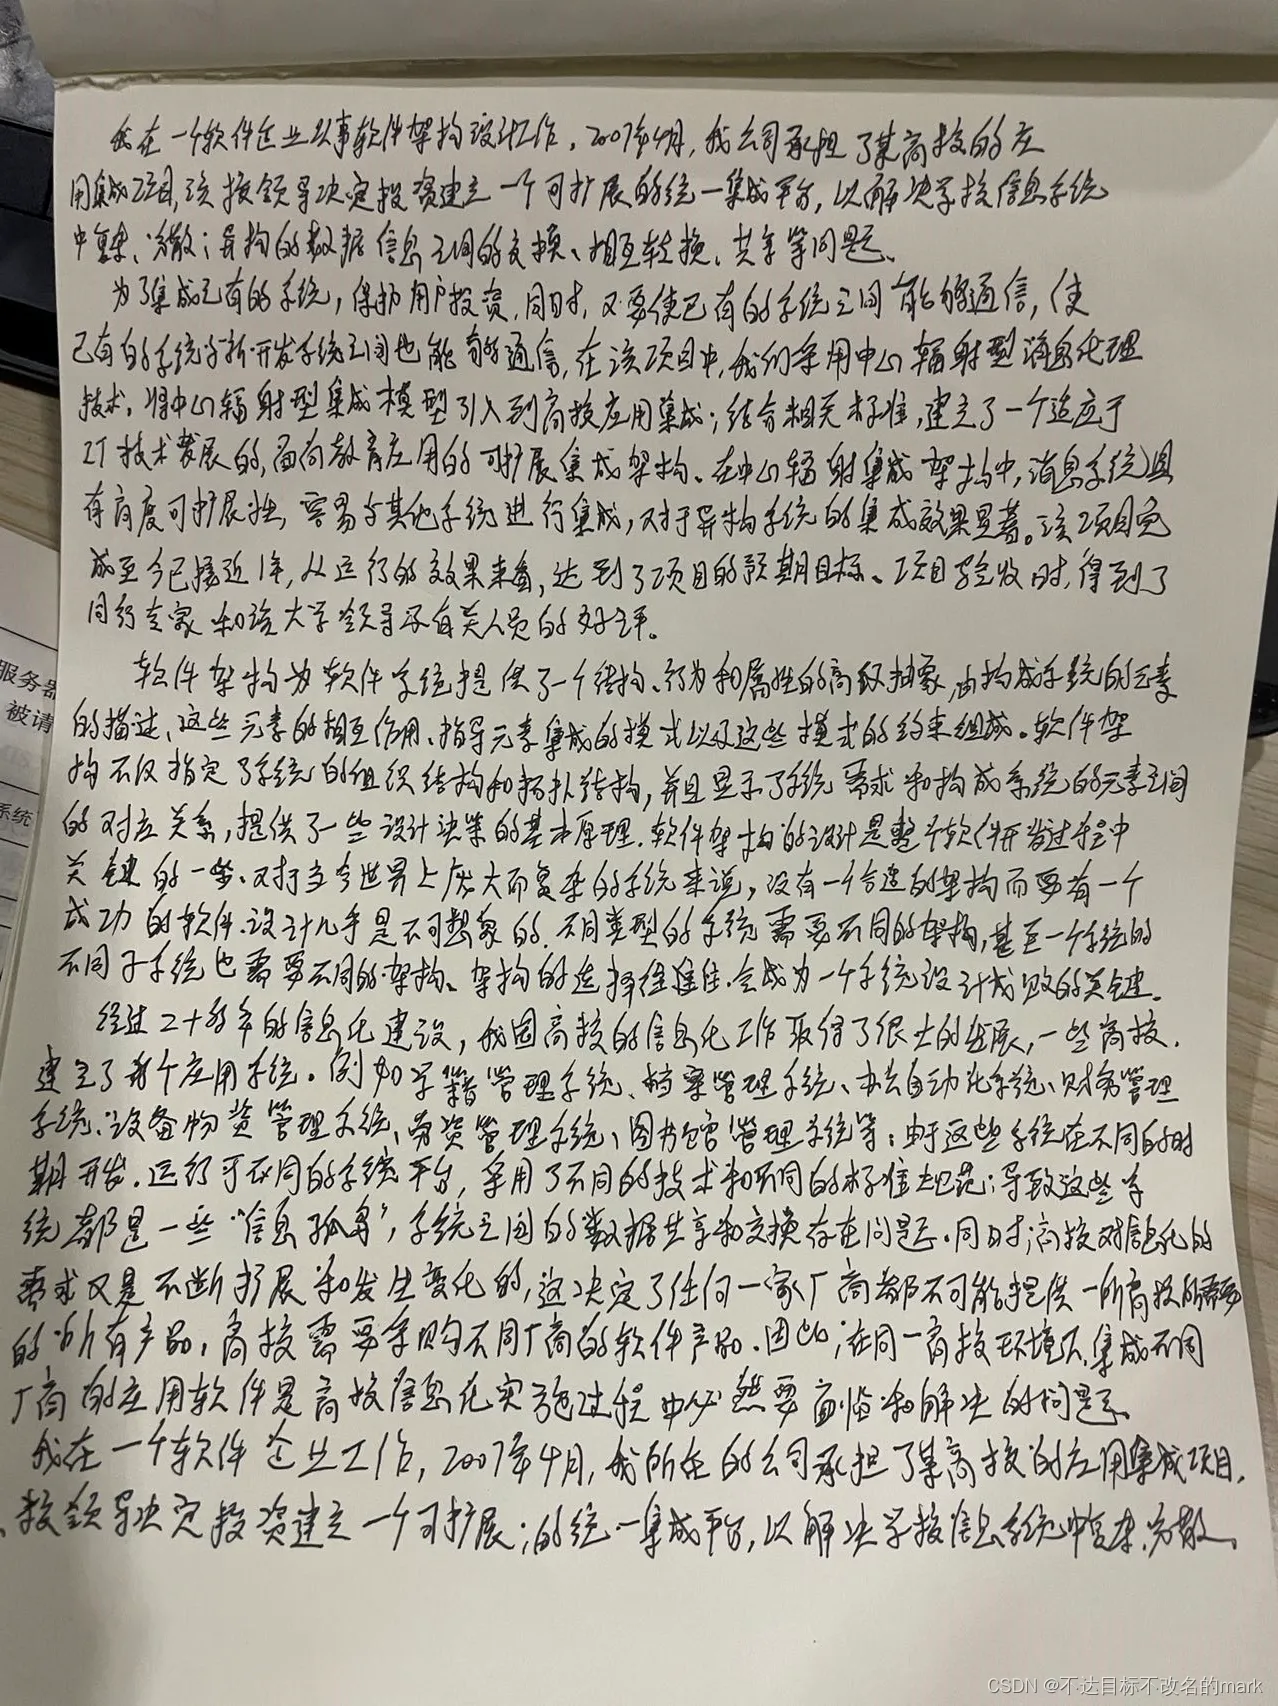 我在一个软件企业从事软件架构设计工作，2007年4月，我公司承担了某高校的应
用集成项目，该校领导决定投资建立一个可扩展的统一集成平台，以解决学校信息系统
中复杂、分散、异构的数据信息之间的交换、相互转换、共享等问题。
为了集成已有的系统，保护用户投资，同时，又要使已有的系统之间能够通信，使
已有的系统与新开发系统之间也能够通信，在该项目中，我们采用中心辐射型消息代理
技术，将中心辐射型集成模型引入到高校应用集成；结合相关标准，建立了一个适应于
IT技术发展的，面向教育应用的可扩展集成架构。在中心辐射集成架构中，消息系统具
有高度可扩展性，容易与其他系统进行集成，对于异构系统的集成效果显著。该项目完
成至今已接近1年，从运行的效果来看，达到了项目的预期目标。项目验收时，得到了
同行专家和该大学领导及有关人员的好评。
软件架构为软件系统提供了一个结构、行为和属性的高级抽象，由构成系统的元素
的描述、这些元素的相互作用、指导元素集成的模式以及这些模式的约束组成。软件架
构不仅指定了系统的组织结构和拓扑结构，并且显示了系统需求和构成系统的元素之间
的对应关系，提供了一些设计决策的基本原理。软件架构的设计是整个软件开发过程中
关键的一步。对于当今世界上庞大而复杂的系统来说，没有一个合适的架构而要有一个
成功的软件设计几乎是不可想象的。不同类型的系统需要不同的架构，甚至一个系统的
不同子系统也需要不同的架构。架构的选择往往会成为一个系统设计成败的关键。
经过二十多年的信息化建设，我国高校的信息化工作取得了很大的发展，一些高校
建立了多个应用系统。例如学籍管理系统、档案管理系统、办公自动化系统、财务管理
系统、设备物资管理系统、劳资管理系统、图书馆管理系统等；由于这些系统在不同的时
期开发，运行于不同的系统平台，采用了不同的技术和不同的标准规范；导致这些系
统都是一些“信息孤岛”，系统之间的数据共享和交换存在问题。同时；高校对信息化的
需求又是不断扩展和发生变化的，这决定了任何一家厂商都不可能提供一所高校所需要
的所有产品，高校需要采购不同厂商的软件产品。因此；在同一高校环境下，集成不同
厂商的应用软件是高校信息化实施过程中必然要面临和解决的问题。
我在一个软件企业工作，2007年4月，我所在的公司承担了某高校的应用集成项目，
校领导决定投资建立一个可扩展；的统一集成平台，以解决学校信息系统中复杂、分散、
服务器
被请
系统
CSDN @不达目标不改名的mark